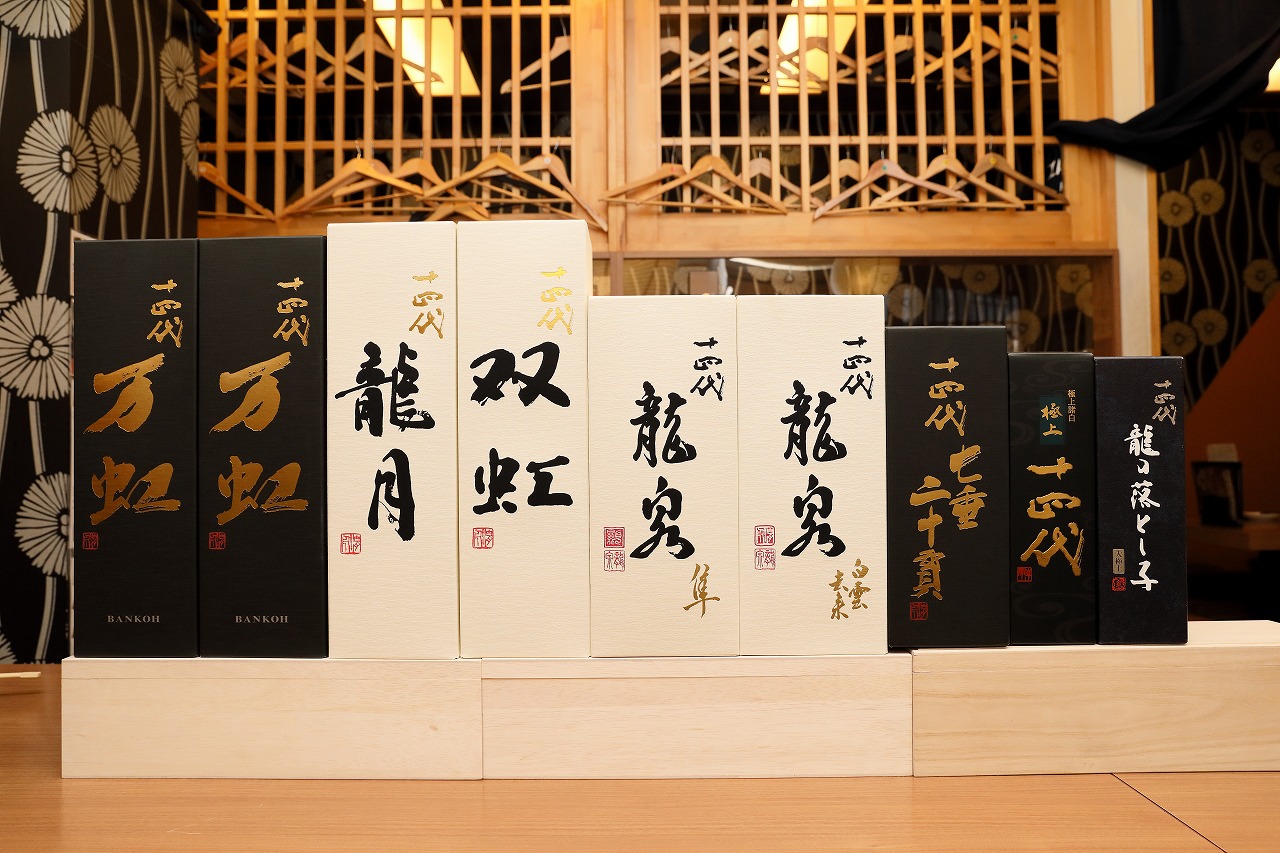 十四代
万虹
BANKOH
十四代
万虹
BANKOH
十四代
龍月
十四代
双虹
十四代
龍泉
隼
十四代
龍泉
白雲
去来
十四代
七垂
二十貫
極上諸白
極上
十四代
十四代
龍の落とし子
大極上